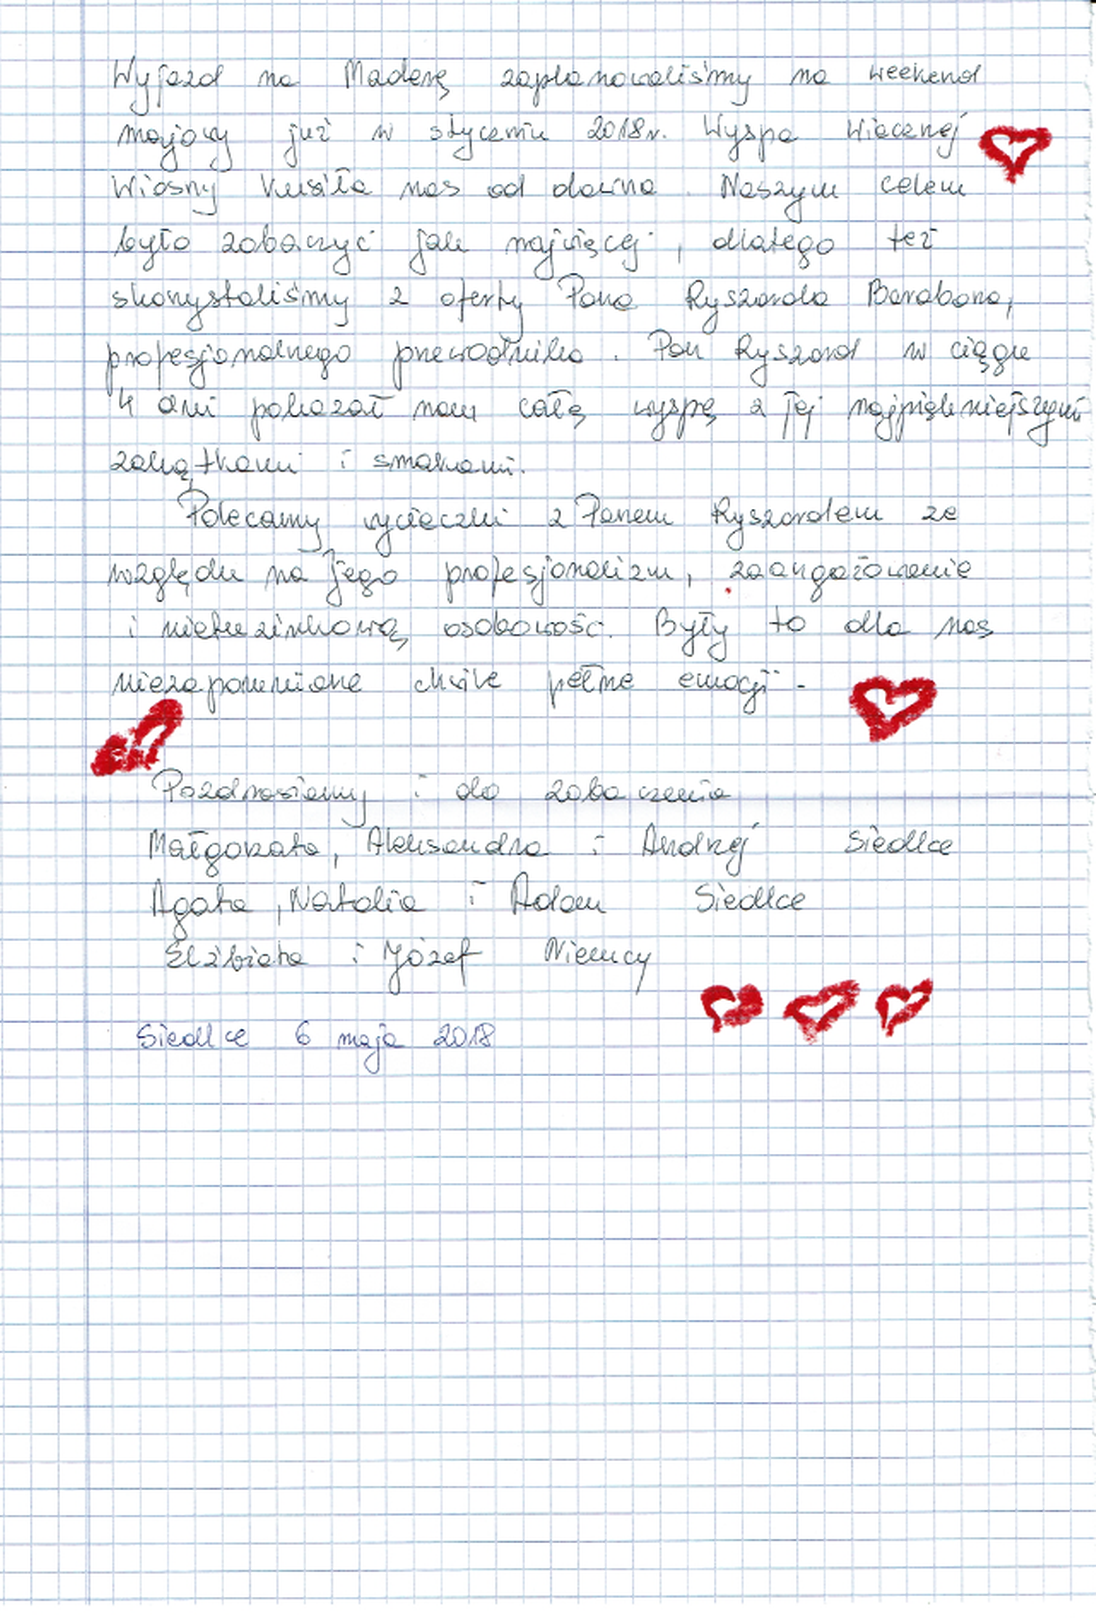 Wyjazd na Maderę zaplanowaliśmy na weekend
majowy już w styczniu 2018r. Wyspa Wiecznej
Wiosny kusiła nas od dawna. Naszym celem
było zobaczyć jak najwięcej, dlatego też
skorzystaliśmy z oferty Pana Ryszarda Barabona,
profesjonalnego przewodnika. Pan Ryszard w ciągu
4 dni pokazał nam całą wyspę z jej najpiękniejszymi
zakątkami i smakami.
Polecamy wycieczki z Panem Ryszardem ze
względu na jego profesjonalizm, zaangażowanie
i nietuzinkową osobowość. Były to dla nas
niezapomniane chwile pełne emocji.
Pozdrawiamy i do zobaczenia
Małgorzata, Aleksandra i Andrzej Siedlce
Agata, Natalia i Adam Siedlce
Elżbieta i Józef Niemcy
Siedlce 6 maja 2018